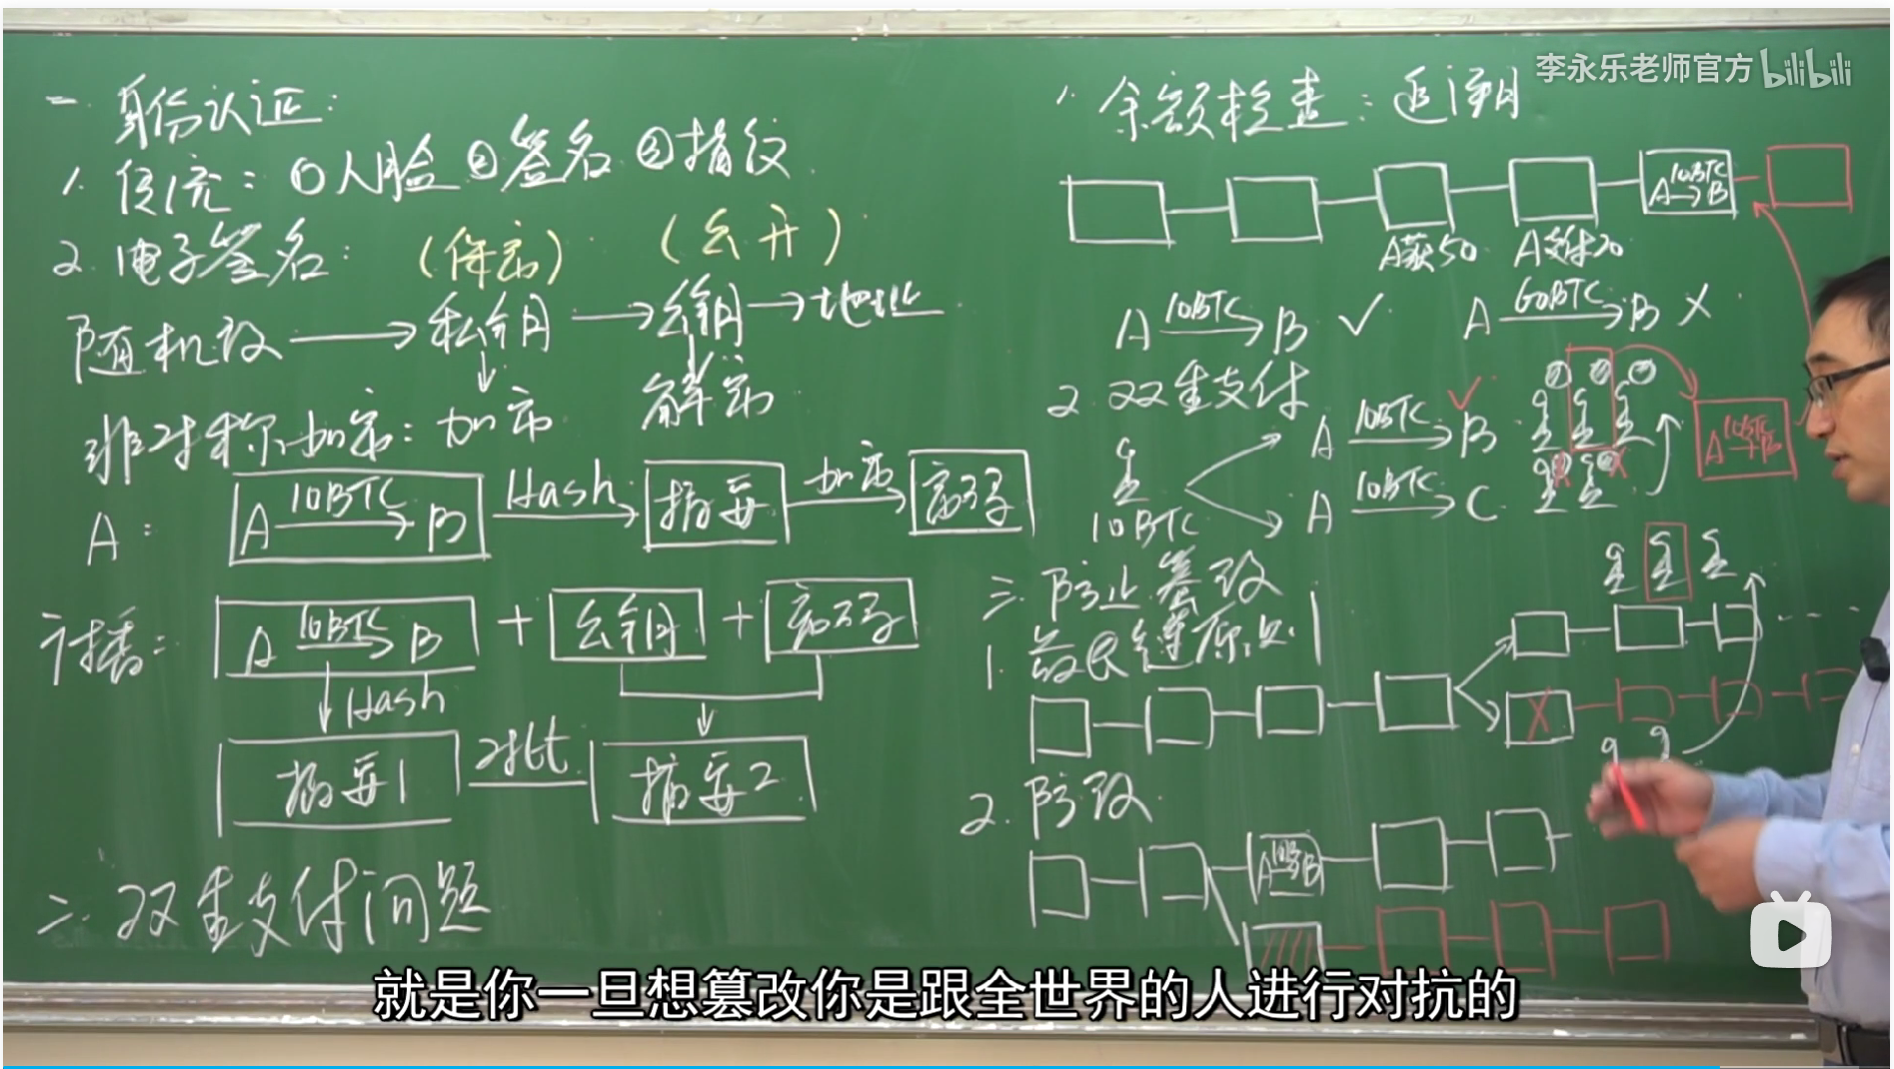 一. 身份认证:
1. 传统: ①人脸 ②签名 ③指纹
2. 电子签名: (保密) (公开)
随机数 → 私钥 → 公钥 → 地址
非对称加密: 加密 解密
A: A 10BTC→ B Hash→ 摘要 加密→ 密码
广播: A 10BTC→ B + 公钥 + 密码
↓Hash ↓
摘要1 对比 摘要2
二. 双重支付问题
1. 余额检查: 追溯
A 10BTC→ B
A获50 A支付20
A 10BTC→ B ✓ A 60BTC→ B X
2. 双重支付
10BTC
A 10BTC→ B ✓
A 10BTC→ C
A 10BTC→ B
三. 防止篡改
1. 最长链原则
X
2. 防改
A 10B→ B
李永乐老师官方 bilibili
就是你一旦想篡改你是跟全世界的人进行对抗的